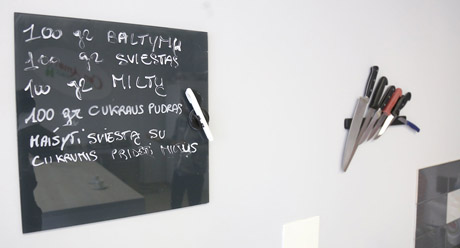 100 gr BALTYMŲ
100 gr SVIESTAS
100 gr MILTŲ
100 gr CUKRAUS PUDRAS
MAIŠYTI SVIESTĄ SU
CUKRUMIS PRIDĖTI MILTUS